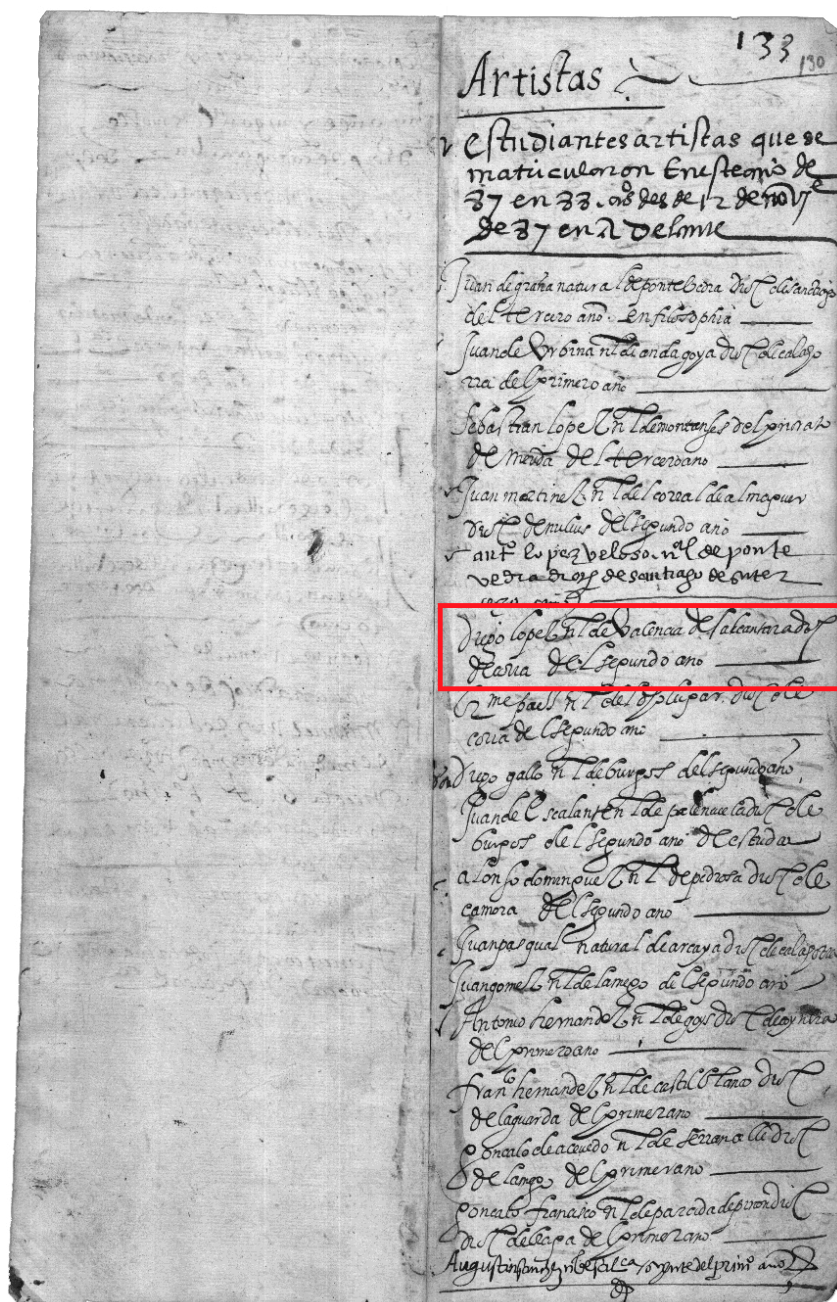 133
130
Artistas
estudiantes artistas que se
matricularon En este año de
87 en 88. os desde 12 de nobie
de 87 en adelante
Juan de graña natural de pontebedra dioc de sanctiago
del tercero año. en filosophia
Juan de Urbina nl de andagoya dioc de calaho
rra del primero año
Sebastian lopez nl de montanches del priorato
de merida del tercero año
Juan martinez nl del corral de almaguer
dioc de nulius del segundo año
ant lopez veloso. nl de ponte
vedra dioc de santiago de
Diego lopez nl de Valencia de alcantara dioc
de coria del segundo año
nl del dioc de
coria del segundo año
Diego gallo nl de burgos del segundo año
Juan de Escalante nl de palençuela dioc de
burgos del segundo año de estudiar
alonso dominguez nl de pedrosa dioc de
camora del segundo año
Juan pasqual natural de arcaya dioc de calahorra
Juan gomez nl de lamego del segundo año
Antonio hernandez nl de goys dioc de coynbra
del primero año
franco hernandez nl de castil blanco dioc
de la guarda del primer año
gonçalo de acevedo nl de dioc
de lamego del primer año
gonçalo francisco nl de parada de dioc
dioc de lamego del primer año
Augustin sanchez nl de salca oyente del primo año